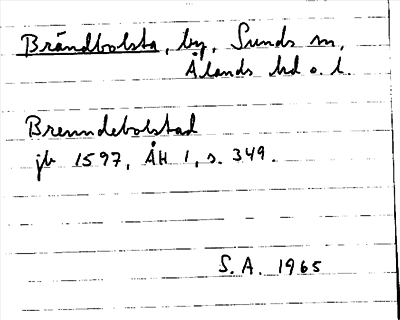 Brändbolsta, by, Sunds sn,
Ålands hd o. l.
Brenndebolstad
jb 1597, ÅH 1, s. 349.
S. A. 1965